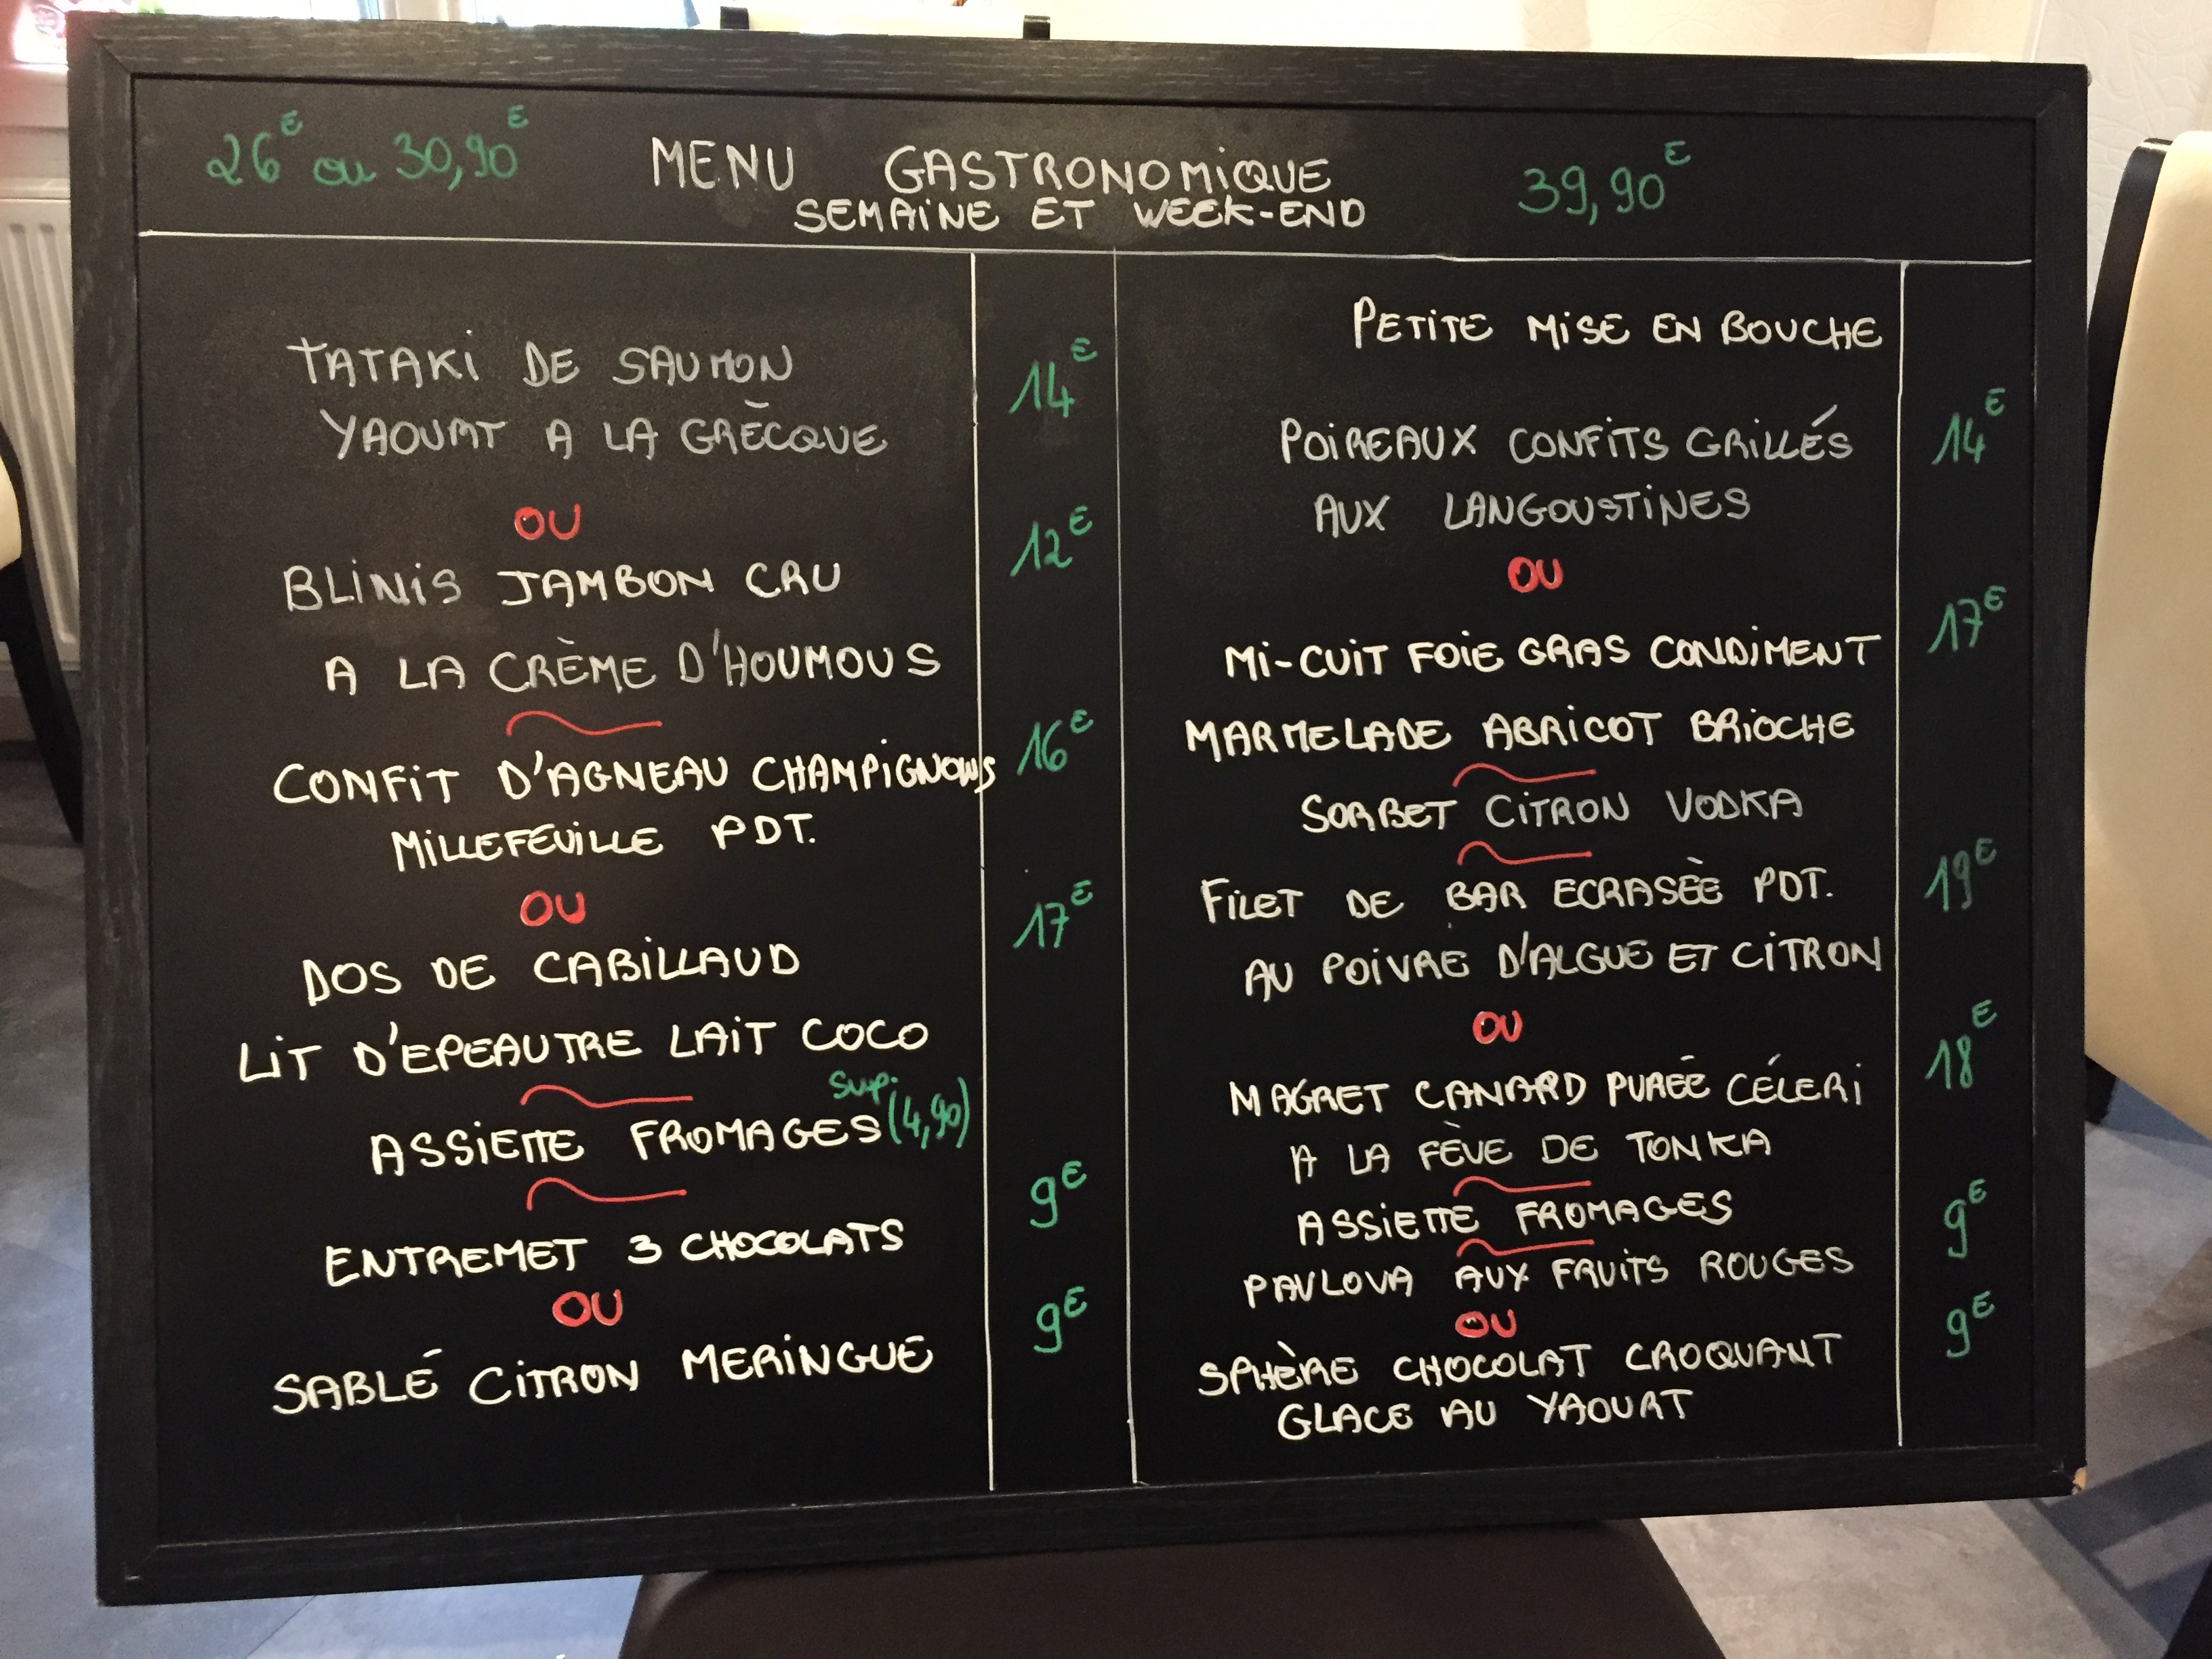 26€ ou 30,90€
MENU GASTRONOMIQUE
SEMAINE ET WEEK-END
39,90€
TATAKI DE SAUMON
YAOURT A LA GRÈCQUE
14€
OU
BLINIS JAMBON CRU
12€
A LA CRÈME D'HOUMOUS
CONFIT D'AGNEAU CHAMPIGNONS
16€
MILLEFEUILLE PDT.
OU
DOS DE CABILLAUD
17€
LIT D'EPEAUTRE LAIT COCO
ASSIETTE FROMAGES sup. (4,90)
ENTREMET 3 CHOCOLATS
9€
OU
SABLÉ CITRON MERINGUE
9€
PETITE MISE EN BOUCHE
POIREAUX CONFITS GRILLÉS
14€
AUX LANGOUSTINES
OU
MI-CUIT FOIE GRAS CONDIMENT
17€
MARMELADE ABRICOT BRIOCHE
SORBET CITRON VODKA
FILET DE BAR ECRASÈE PDT.
19€
AU POIVRE D'ALGUE ET CITRON
OU
MAGRET CANARD PURÉE CÉLERI
18€
A LA FÈVE DE TONKA
ASSIETTE FROMAGES
PAVLOVA AUX FRUITS ROUGES
9€
OU
SPHÈRE CHOCOLAT CROQUANT
9€
GLACE AU YAOURT